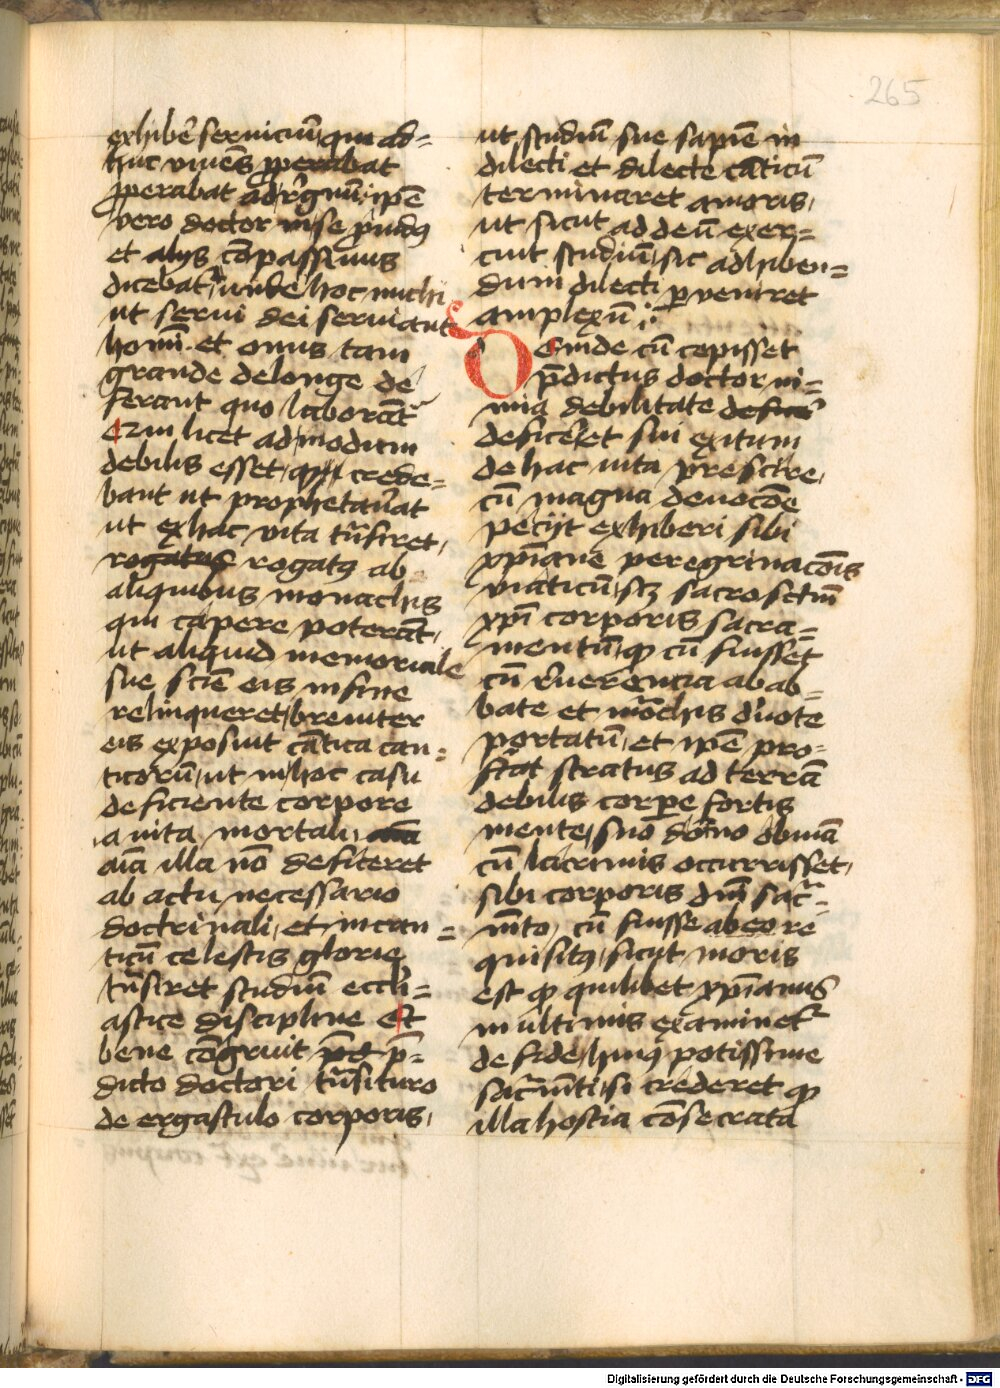 265
exhibēˀ seruiciū, qui ad=
huc viuēs pperabat
pperabat ad rˀgnū, ipē
vero doctor in se prˀuidꝰ
et alijs cōpassiuus
dicebat, unde hoc michi
ut serui dei seruiant
homī. et onus tam
grande de longe de
ferant quo laborāt
Et cum licet ad modum
debilis esset, crede=
bant ut prophetauˀat
ut ex hac vita trˀsiret,
rogatus rogatꝰ ab
aliquibus monachis
qui capere poterāt,
ut aliquid memoriale
sue sciē eis in fine
relinqueret, breuiter
eis exposuit cātica can=
ticorū, ut in hoc casu
deficiente corpore
a uita mortali,
aīa illa nō deficeret
ab actu necessario
doctrinali, et in can=
ticū celestis glorie
trˀsiret studiū eccli=
astice discipline Et
bene cōgruit pdˀ p̄=
dicto doctori trˀsituro
de ergastulo corporis,
ut studiū sue sapiē in
dilecti et dilecte cāticū
terminaret amoris,
ut sicut ad deū exer=
cuit studiū, sic adhiben=
dum dilecti pueniret
amplexū
Deinde cū cepisset
p̄dictus doctor ni=
mia debilitate deficˀe
deficeret sui exitum
de hac uita prescire,
cū magna deuocōe
pecijt exhiberi sibi
xpīane peregrinacōis
viaticū, scꝫ sacrosctm̄
xpī corporis sacra=
mentū, qꝫ cū fuisset
cū rˀuerencia ab ab=
bate et mōchis dˀuote
portatū, et ipē pro=
strat stratus ad terrā
debilis corpe fortis
mente, suo domˀno obuiā
cū lacrimis occurrisset,
sibi corporis dnī sacˀ=
mˀto, cū fuisse ab eo re
quisitꝰ, sicut moris
est qꝫ quilibet xpīanus
in ultimis examinetˀ
de fide, huiꝰ potissime
sacˀmˀti, si crederet qꝫ
illa hostia cōsecrata
Digitalisierung gefördert durch die Deutsche Forschungsgemeinschaft - DFG